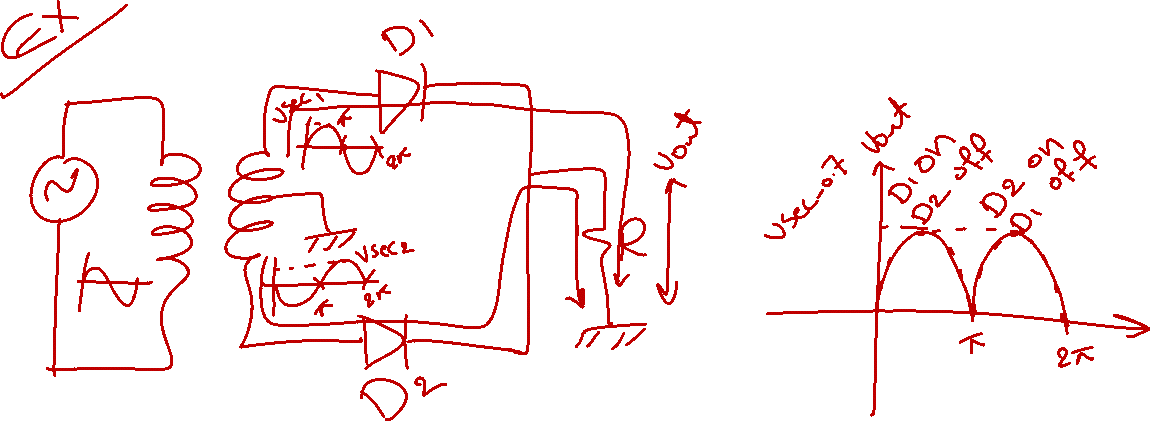 Ex
D1
Vsec1
π
2π
Vsec2
π
2π
D2
R
Vout
Vout
Vsec-0.7
D1 on
D2 off
D2 on
D1 off
π
2π